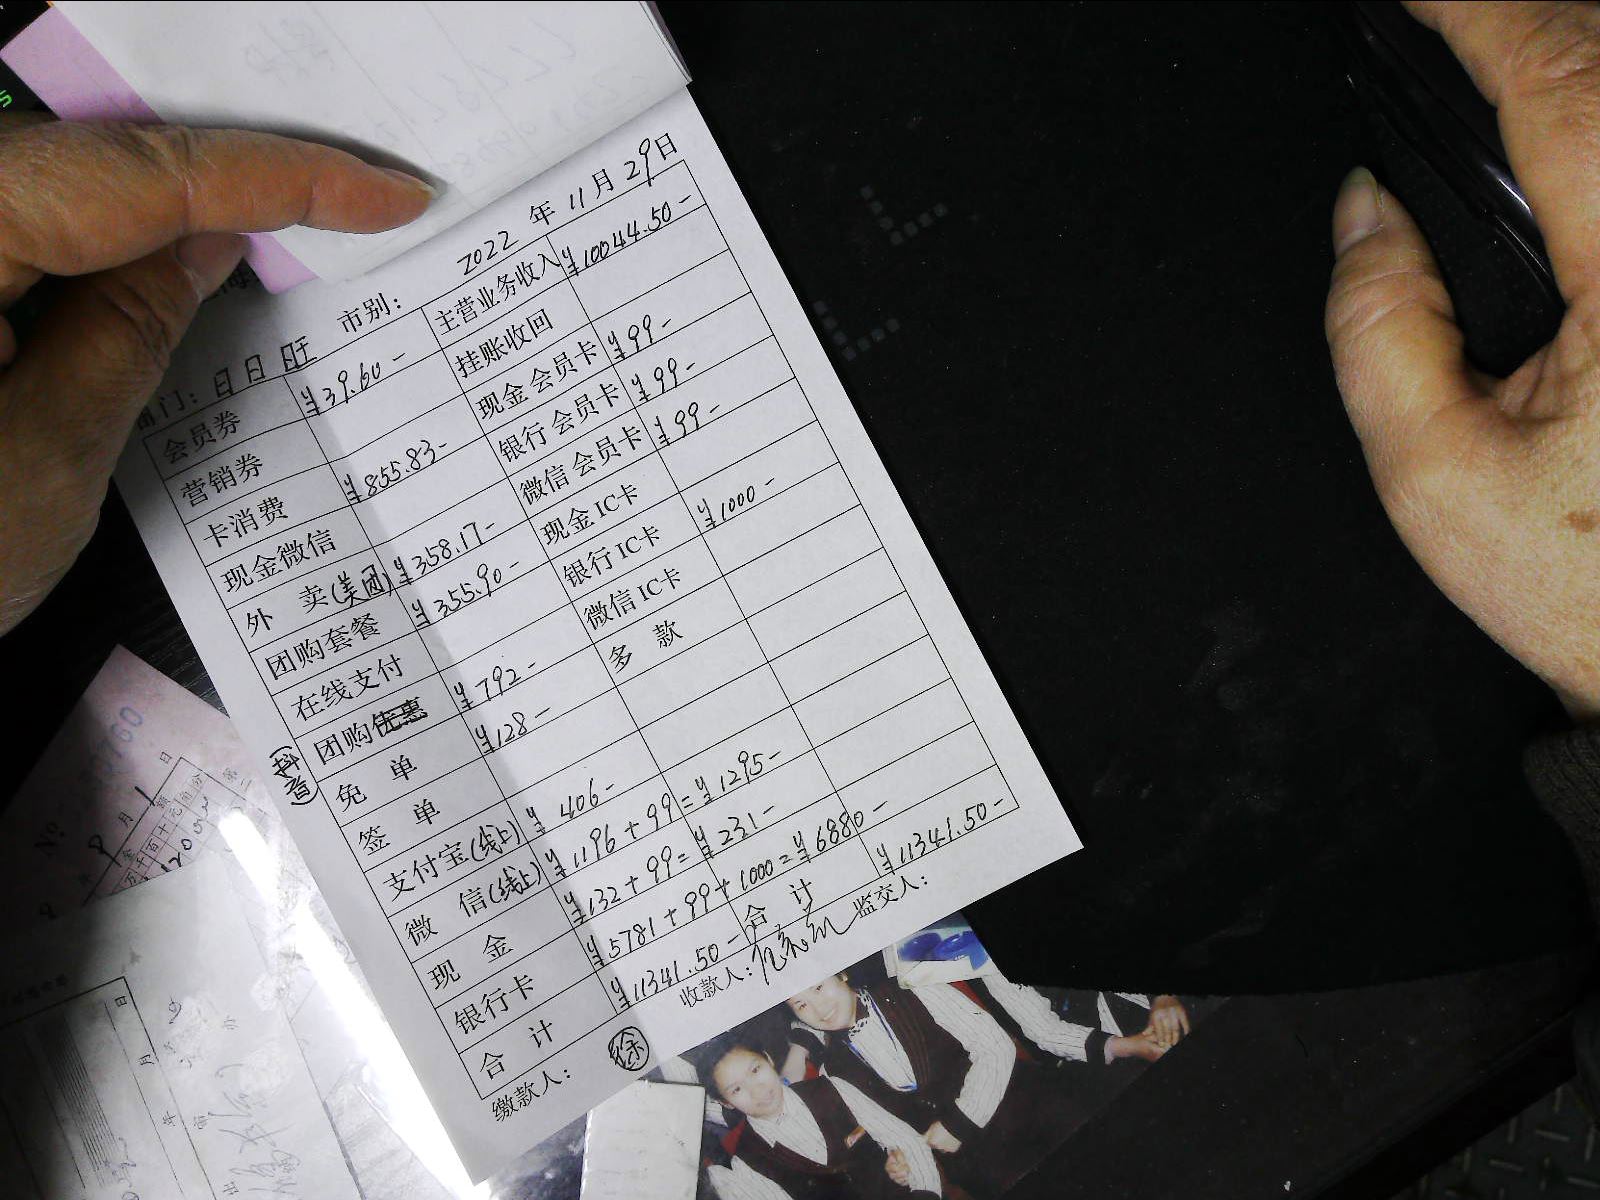 2022 年 11 月 29 日
部门：日日旺 市别：
会员券 ¥39.60- 主营业务收入 ¥10044.50-
营销券 挂账收回
卡消费 ¥855.83- 现金会员卡 ¥99-
现金微信 银行会员卡 ¥99-
外 卖(美团) ¥358.17- 微信会员卡 ¥99-
团购套餐 ¥355.90- 现金IC卡
在线支付 银行IC卡 ¥1000-
团购优惠(抖音) ¥792- 微信IC卡
免 单 ¥128- 多 款
签 单
支付宝(线上) ¥406-
微 信(线上) ¥1196+99=¥1295-
现 金 ¥132+99=¥231-
银行卡 ¥5781+99+1000=¥6880-
合 计 ¥11341.50- 合 计 ¥11341.50-
缴款人：徐 收款人： 监交人：